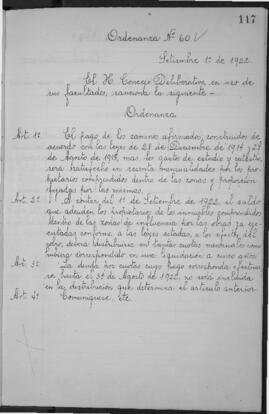 117
Ordenanza Nº 60
Setiembre 1º de 1922.
El H. Concejo Deliberativo, en uso de
sus facultades, sanciona la siguiente -
Ordenanza
Art. 1º El pago de los camino afirmados, construidos de
acuerdo con las leyes de 28 de Diciembre de 1914 y 27
de Agosto de 1918, mas los gastos de estudio y
será satisfecho en mensualidades por los pro-
pietarios comprendidos dentro de las zonas y proporcion
fijadas por las mismas.
Art. 2º A contar del 1º de Setiembre de 1922, el saldo
que adeuden los propietarios de los inmuebles comprendidos
dentro de las zonas de influencia por las obras ya eje-
cutadas conforme a las leyes citadas, a los efectos del
pago, deberá distribuirse en tantas cuotas mensuales como
correspondido en una liquidación a cinco años.
Art. 3º La deuda por cuotas cuyo pago corresponda efectuar-
se hasta el 31 de Agosto de 1922, no será incluida
en la distribución que determina el artículo anterior.
Art. 4º Comuníquese, etc.